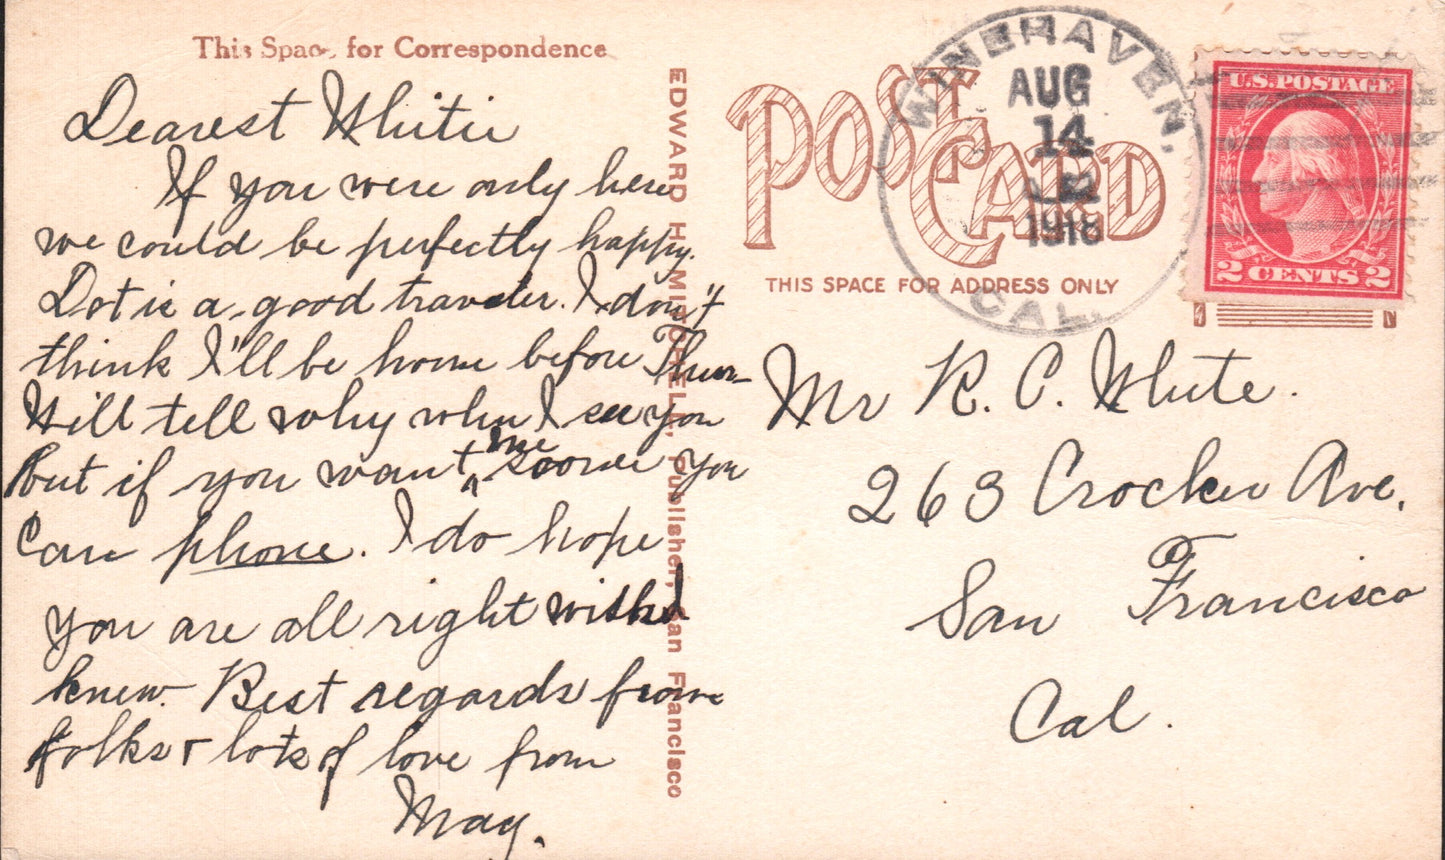 This Space for Correspondence
Dearest Whitie
If you were only here
we could be perfectly happy.
Dot is a good traveler. I don't
think I'll be home before Thur-
Will tell why when I see you
But if you want me sooner you
can phone. I do hope
you are all right wish I
knew. Best regards from
folks & lots of love from
May.
EDWARD H. MITCHELL, Publisher, San Francisco
POST CARD
THIS SPACE FOR ADDRESS ONLY
WINEHAVEN,
AUG
14
1918
CAL.
U.S. POSTAGE
2 CENTS 2
Mr R. C. White.
263 Crocker Ave.
San Francisco
Cal.